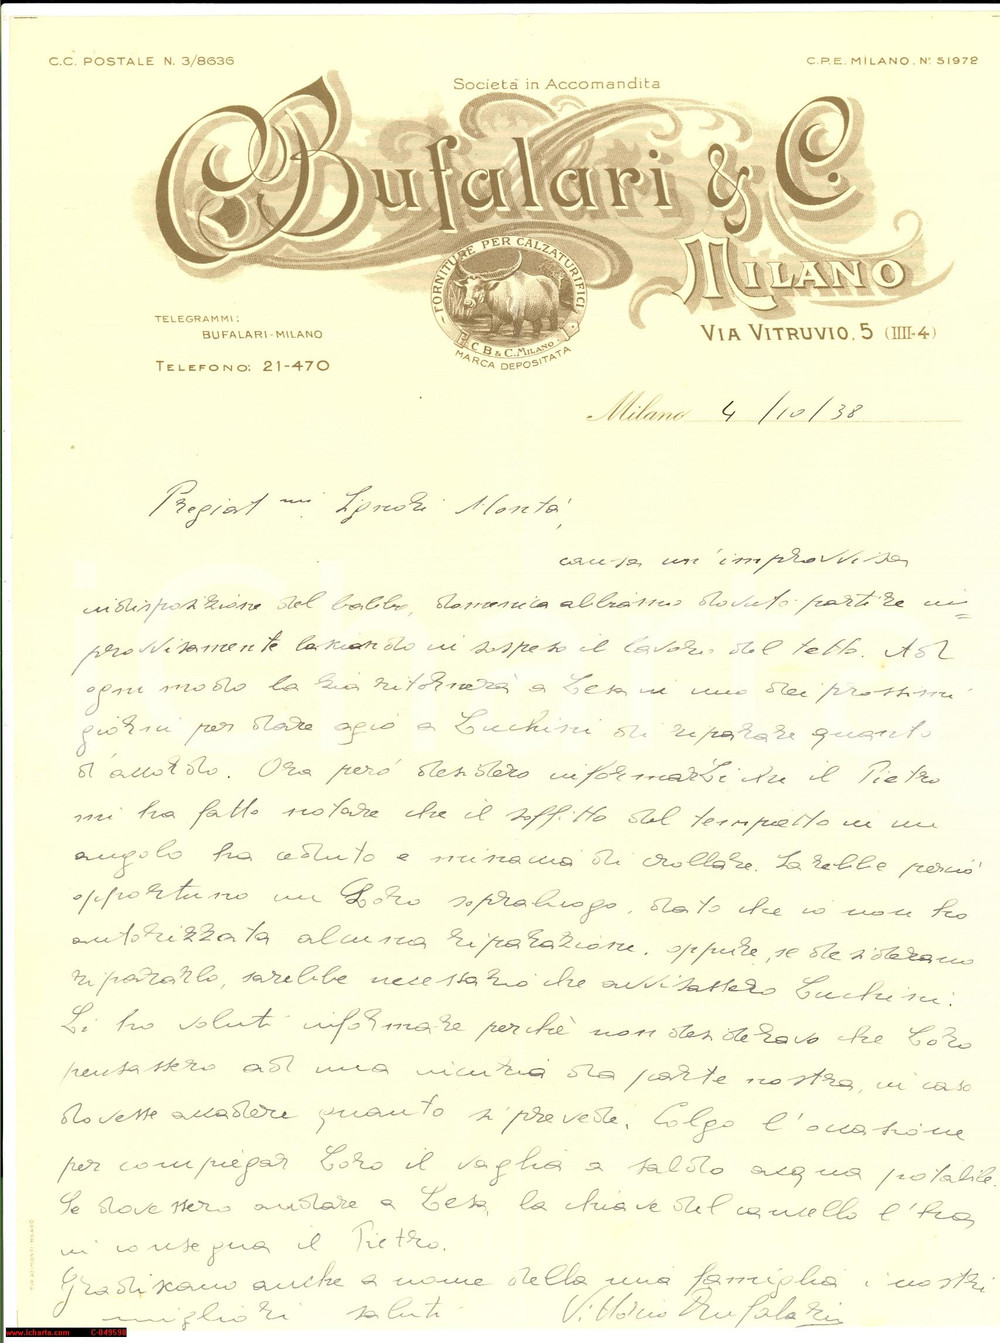 C.C. POSTALE N. 3/8636
C.P.E. MILANO. N° 51972
Società in Accomandita
Bufalari & C.
MILANO
FORNITURE PER CALZATURIFICI
C B & C. MILANO
MARCA DEPOSITATA
TELEGRAMMI:
BUFALARI-MILANO
TELEFONO: 21-470
VIA VITRUVIO, 5 (IIII-4)
Milano 4/10/38
Pregiat mi Signori Montà,
causa un'improvvisa
indisposizione del babbo, domenica abbiamo dovuto partire im=
provvisamente lasciando in sospeso il lavoro del tetto. Ad
ogni modo la zia ritornerà a Lesa in uno dei prossimi
giorni per dare agio a Luchini di riparare quanto
d'accordo. Ora però desidero informarLi che il Pietro
mi ha fatto notare che il soffitto del tempietto in un
angolo ha ceduto e minaccia di crollare. Sarebbe perciò
opportuno un Loro sopraluogo, dato che io non ho
autorizzata alcuna riparazione. oppure, se desiderano
ripararlo, sarebbe necessario che avvisassero Luchini.
Li ho voluti informare perchè non desideravo che Loro
pensassero ad una incuria da parte nostra, in caso
dovesse accadere quanto si prevede. Colgo l'occasione
per compiegar Loro il vaglia a saldo acqua potabile.
Se dovessero andare a Lesa, la chiave del cancello l'ha
in consegna il Pietro.
Gradiscano anche a nome della mia famiglia i nostri
migliori saluti
Vittorio Bufalari
www.icharta.com C-049598
iCharta